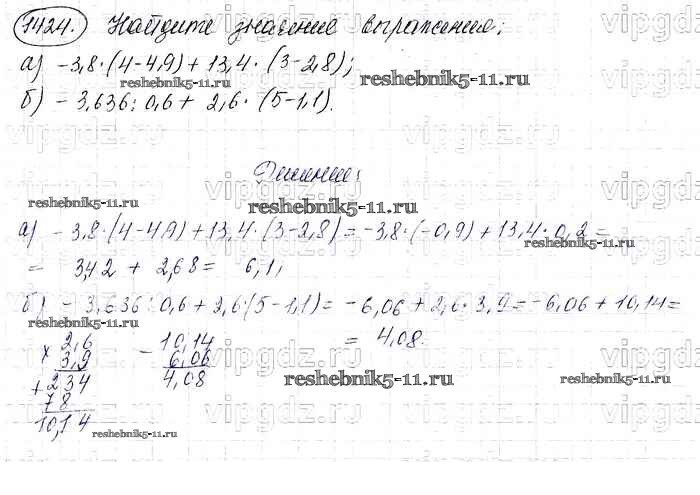 1424. Найдите значение выражения:
а) -3,8·(4-4,9)+13,4·(3-2,8);
reshebnik5-11.ru
reshebnik5-11.ru
б) -3,636:0,6+2,6·(5-1,1).
vipgdz.ru vipgdz.ru vipgdz.ru
Решение:
reshebnik5-11.ru
reshebnik5-11.ru
а) -3,8·(4-4,9)+13,4·(3-2,8)=-3,8·(-0,9)+13,4·0,2=
reshebnik5-11.ru
= 3,42+2,68= 6,1;
б) -3,636:0,6+2,6·(5-1,1)=-6,06+2,6·3,9=-6,06+10,14=
reshebnik5-11.ru
= 4,08.
× 2,6
3,9
+ 234
78
10,14
- 10,14
6,06
4,08
reshebnik5-11.ru
reshebnik5-11.ru
reshebnik5-11.ru